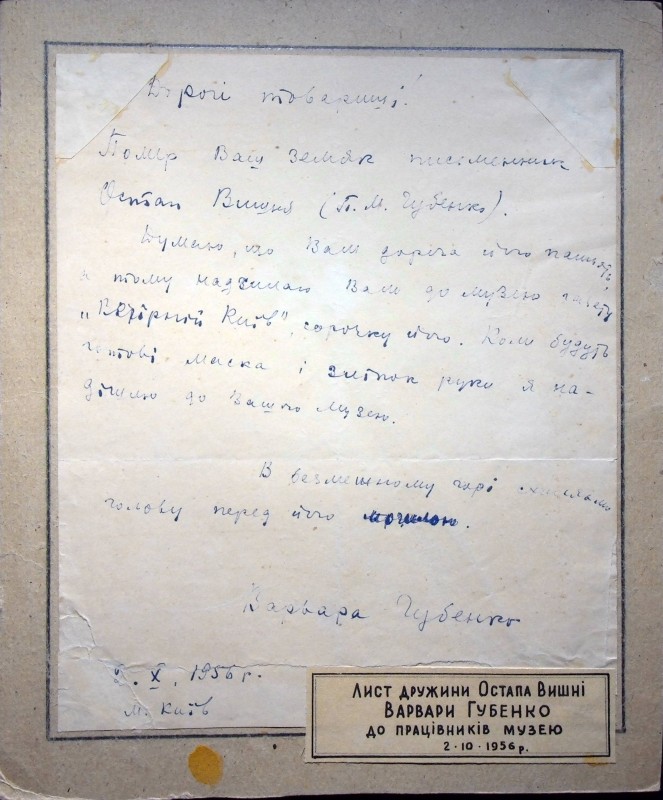 Дорогі товариші!
Помер Ваш земляк письменник
Остап Вишня (П. М. Губенко).
Думаю, що Вам дорога його пам'ять,
і тому надсилаю Вам до музею газету
„Вечірній Київ", сорочку його. Коли будуть
готові маска і зліпок руки я на-
дішлю до Вашого музею.
В безмежному горі схиляємо
голову перед його могилою.
Варвара Губенко
2. X. 1956 г.
м. Київ
Лист дружини Остапа Вишні
Варвари Губенко
до працівників музею
2·10·1956 р.